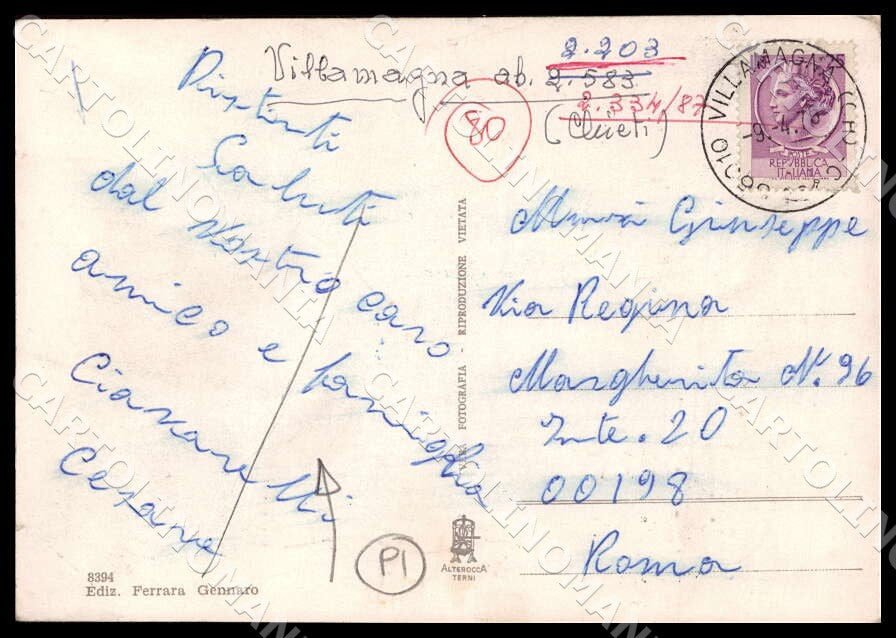 2.203
Villamagna ab. 2.583
2.334/87
(Chieti)
80
VILLAMAGNA (CH)
66010
-9.-4.76
25
POSTE
REPVBBLICA
ITALIANA
Distinti
Saluti
dal Vostro caro
amico e famiglia
Cianarelli
Cesare
Giuseppe
Via Regina
Margherita N. 96
Inte. 20
00198
Roma
VERA FOTOGRAFIA - RIPRODUZIONE VIETATA
PI
ALTEROCCA
TERNI
8394
Ediz. Ferrara Gennaro
CARTOLINOMANIA